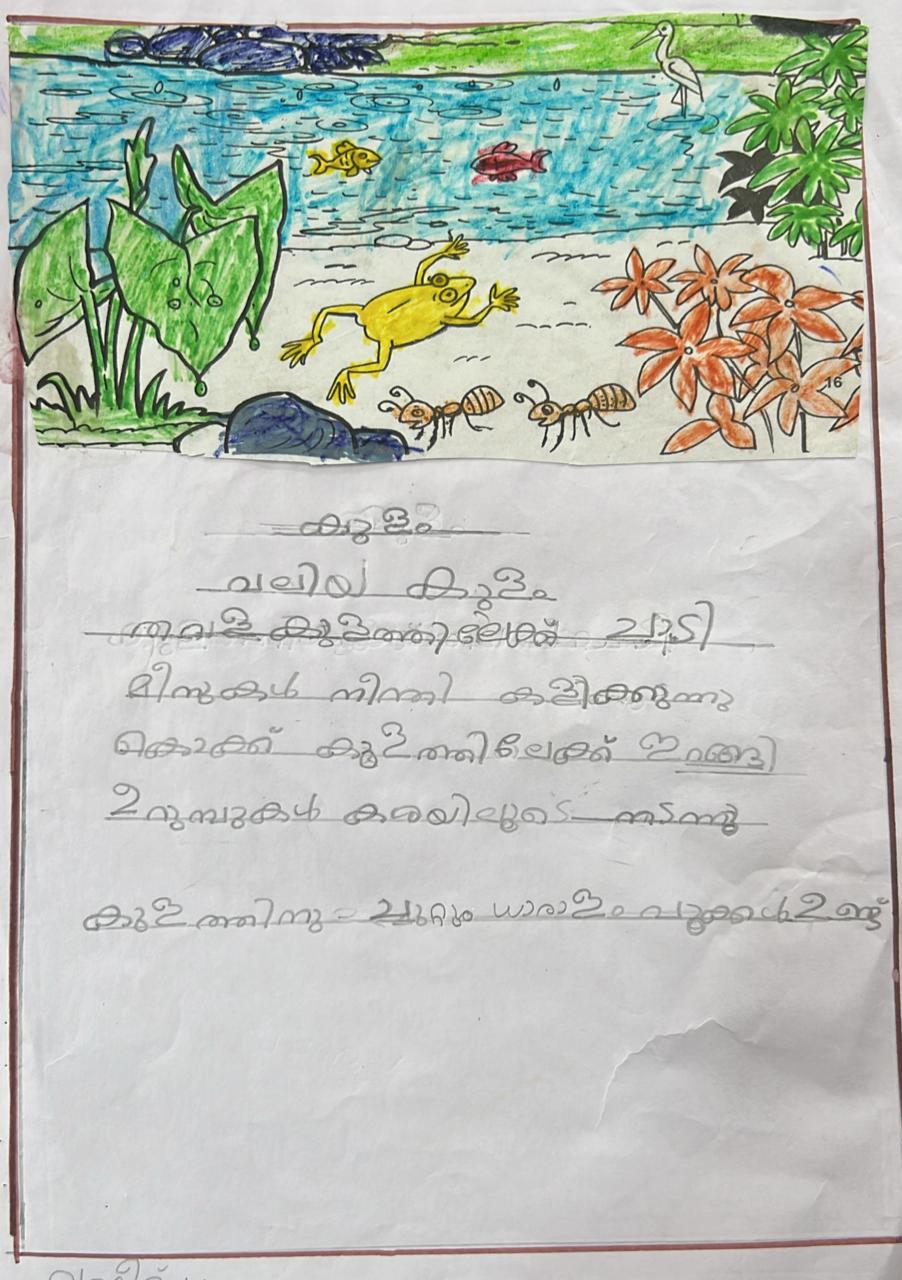 16
കുളം
വലിയ കുളം
തവള കുളത്തിലേക്ക് ചാടി
മീനുകൾ നീന്തി കളിക്കുന്നു
കൊക്ക് കുളത്തിലേക്ക് ഇറങ്ങി
ഉറുമ്പുകൾ കരയിലൂടെ നടന്നു
കുളത്തിനു ചുറ്റും ധാരാളം പൂക്കൾ ഉണ്ട്